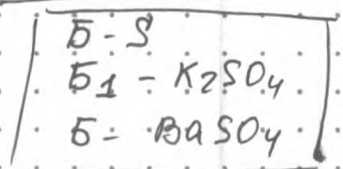 Б - S
Б1 - K2SO4
Б - BaSO4